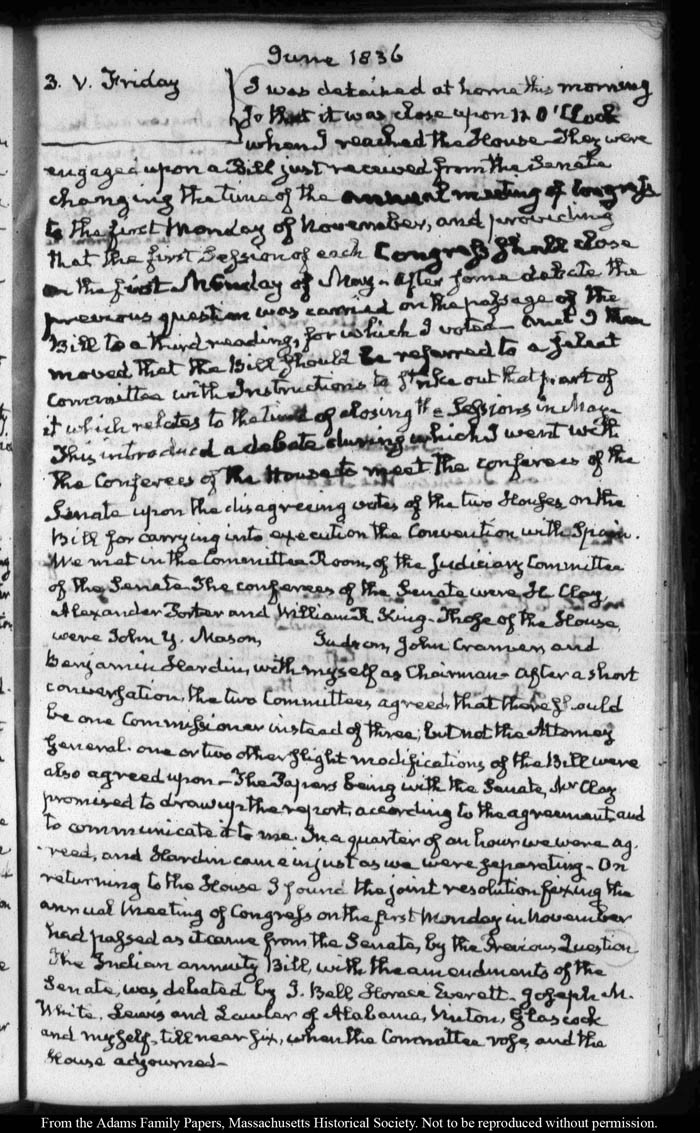 June 1836
3. V. Friday
I was detained at home this morning
so that it was close upon 12 O'Clock
when I reached the House. They were
engaged upon a Bill just received from the Senate
changing the time of the annual meeting of Congress
to the first Monday of November, and providing
that the first Session of each Congress shall close
on the first Monday of May. After some debate the
previous question was carried on the passage of the
Bill to a third reading, for which I voted and I then
moved that the Bill should be referred to a select
Committee with Instructions to strike out that part of
it which relates to the time of closing the Sessions in May.
This introduced a debate during which I went with
the Conferees of the House to meet the conferees of the
Senate upon the disagreeing votes of the two Houses on the
Bill for carrying into execution the Convention with Spain.
We met in the Committee Room, of the Judiciary Committee
of the Senate. The conferees of the Senate were H. Clay,
Alexander Porter and William R. King. Those of the House,
were John Y. Mason, Judson, John Cramer, and
Benjamin Hardin, with myself as Chairman. After a short
conversation, the two Committees agreed, that there should
be one Commissioner instead of three; but not the Attorney
General. one or two other slight modifications of the Bill were
also agreed upon. The Papers being with the Senate, Mr Clay
promised to draw up the report, according to the agreement, and
to communicate it to me. In a quarter of an hour we were ag-
-reed, and Hardin came in just as we were separating. On
returning to the House I found the joint resolution fixing the
annual Meeting of Congress on the first Monday in November
had passed as it came from the Senate, by the Previous Question
The Indian annuity Bill, with the amendments of the
Senate, was debated by J. Bell Horace Everett. Joseph M.
White, Lewis and Lawler of Alabama, Vinton, Glascock
and myself, till near six, when the Committee rose, and the
House adjourned—
From the Adams Family Papers, Massachusetts Historical Society. Not to be reproduced without permission.